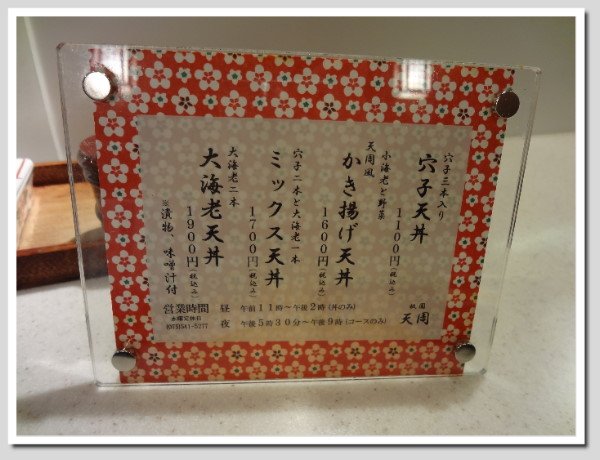 穴子三本入り
穴子天丼
1100円(税込み)
小海老と野菜
天周風
かき揚げ天丼
1600円(税込み)
穴子二本と大海老一本
ミックス天丼
1700円(税込み)
大海老二本
大海老天丼
1900円(税込み)
※漬物 味噌汁付
営業時間 昼 午前11時〜午後2時(丼のみ)
水曜定休日
(075)541-5277 夜 午後5時30分〜午後9時(コースのみ)
祇園
天周